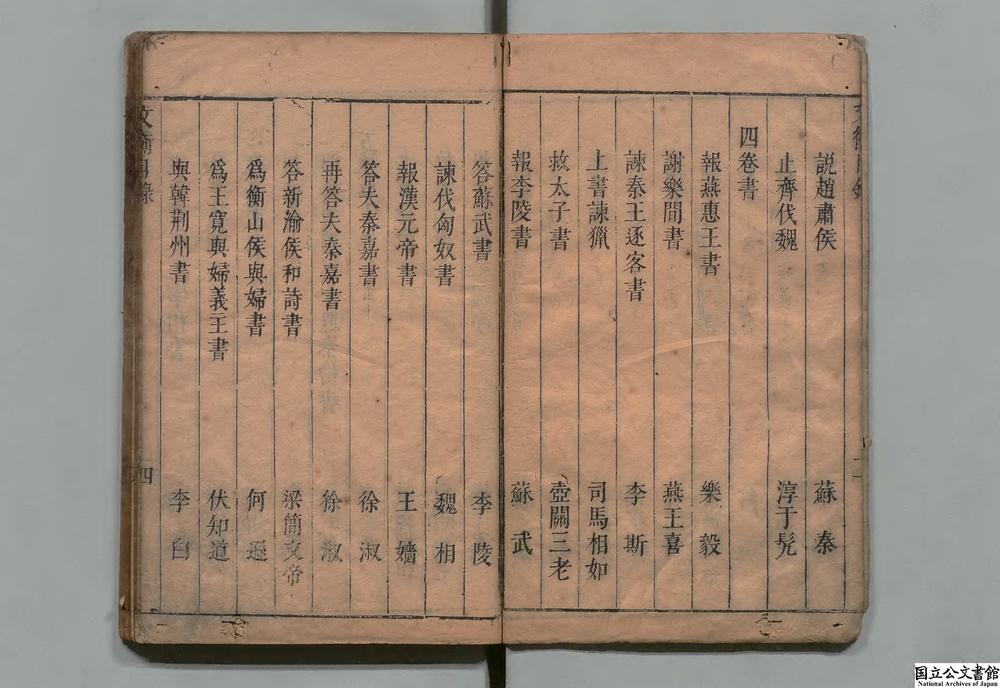 說趙肅侯 蘇秦
止齊伐魏 淳于髠
四卷書
報燕惠王書 樂毅
謝樂間書 燕王喜
諫秦王逐客書 李斯
上書諫獵 司馬相如
救太子書 壺關三老
報李陵書 蘇武
答蘇武書 李陵
諫伐匈奴書 魏相
報漢元帝書 王嬙
答夫秦嘉書 徐淑
再答夫秦嘉書 徐淑
答新渝侯和詩書 梁簡文帝
爲衡山侯與婦書 何遜
爲王寬與婦義王書 伏知道
與韓荆州書 李白
四
国立公文書館
National Archives of Japan